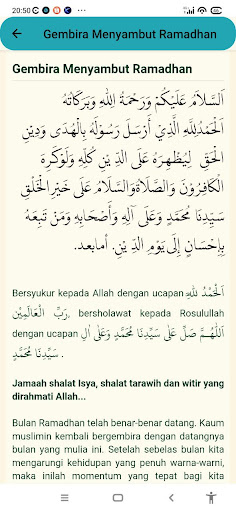 20:50
Gembira Menyambut Ramadhan
Gembira Menyambut Ramadhan
اَلسَّلاَمُ عَلَيْكُمْ وَرَحْمَةُ اللهِ وَبَرَكَاتُهُ
اَلْحَمْدُلِلَّهِ الَّذِيْ أَرْسَلَ رَسُوْلَهُ بِالْهُدَى وَدِيْنِ
الْحَقِّ لِيُظْهِرَهُ عَلَى الدِّ يْنِ كُلِّهِ وَلَوْكَرِهَ
الْكَافِرُوْنَ وَالصَّلَاةُوَالسَّلاَمُ عَلَى خَيْرِ الْخَلْقِ
سَيِّدِنَا مُحَمَّدٍ وَعَلَى آلِهِ وَأَصْحَابِهِ وَمَنْ تَبِعَهُ
بِإِحْسَانٍ إِلَى يَوْمِ الدِّ يْنِ. أمابعد.
Bersyukur kepada Allah dengan ucapan اَلْحَمْدُ لِلَّهِ
رَبِّ الْعَالَمِيْنَ, bersholawat kepada Rosulullah
dengan ucapan اَللَّهُمَّ صَلِّ عَلَى سَيِّدِنَا مُحَمَّدٍ وَعَلَى اَلِ
سَيِّدِنَا مُحَمَّدٍ .
Jamaah shalat Isya, shalat tarawih dan witir yang
dirahmati Allah...
Bulan Ramadhan telah benar-benar datang. Kaum
muslimin kembali bergembira dengan datangnya
bulan yang mulia ini. Setelah sebelas bulan kita
mengarungi kehidupan yang penuh warna-warni,
maka inilah momentum yang tepat bagi kita